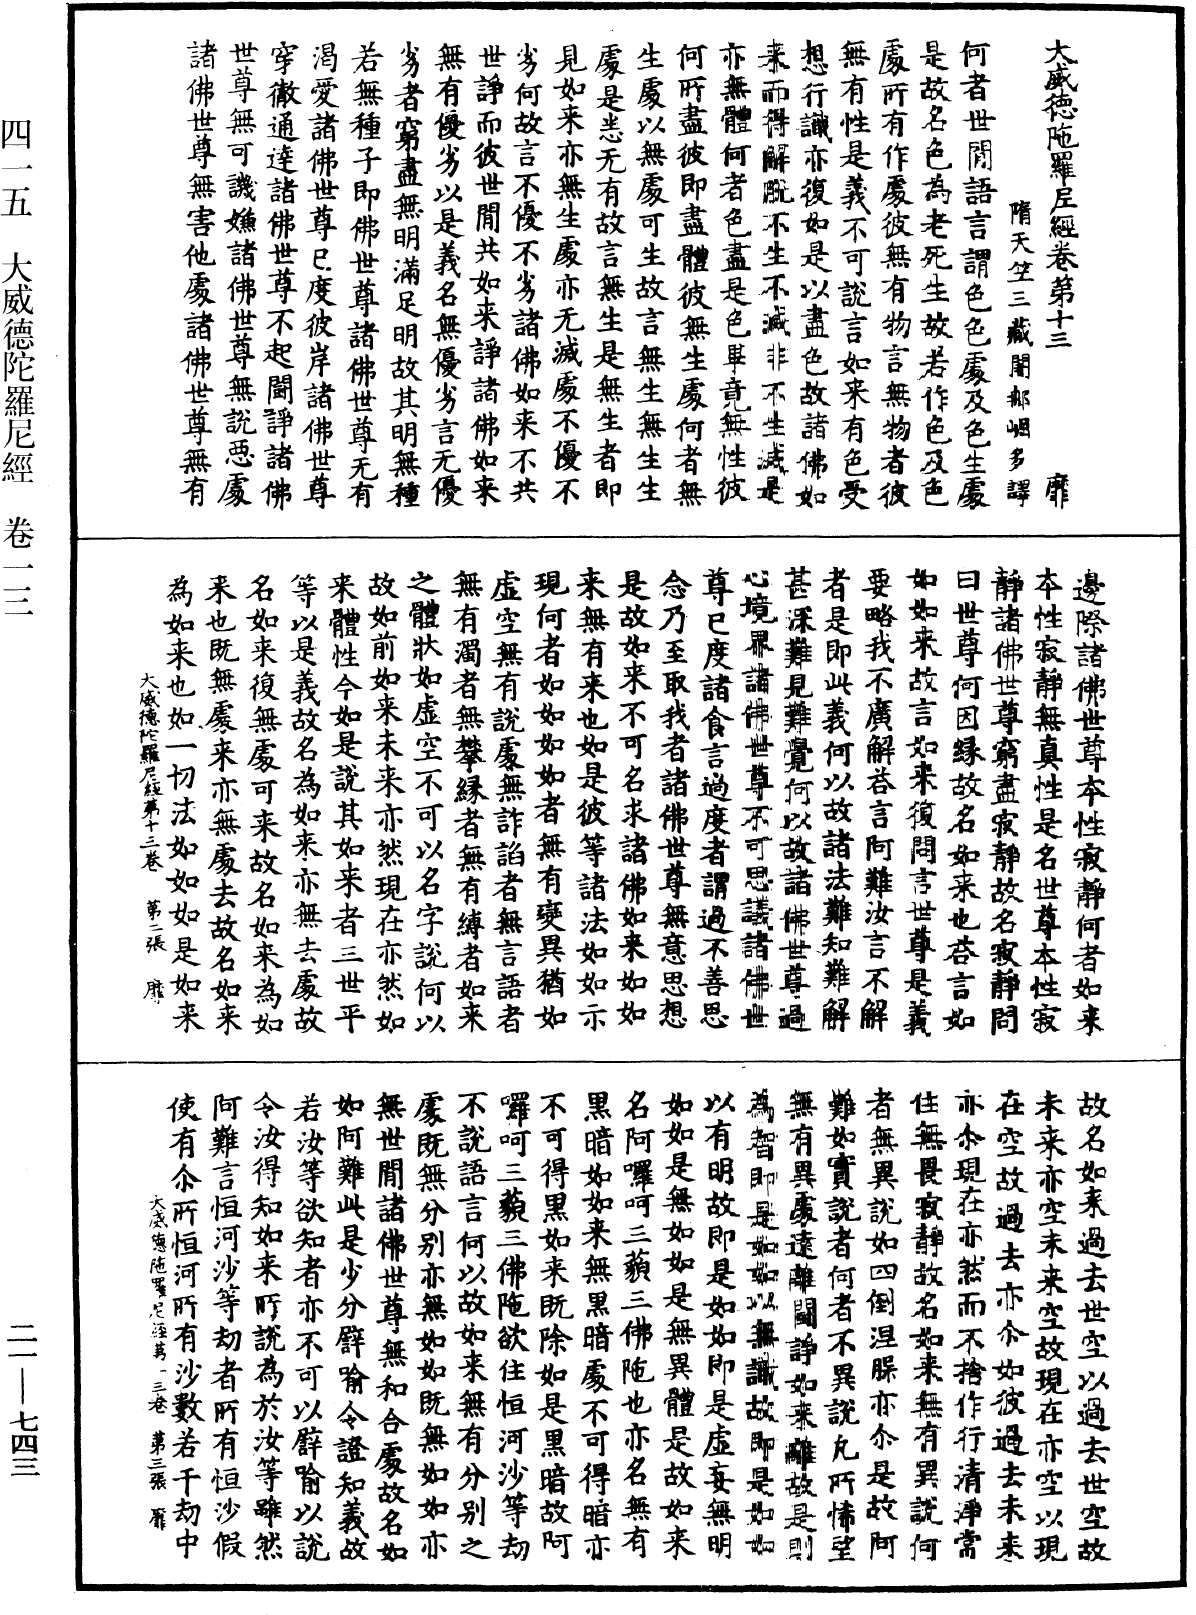 大威德陁羅尼經卷第十三 靡
隋天竺三藏闍那崛多譯
何者世間語言謂色色處及色生處
是故名色為老死生故若作色及色
處所有作處彼無有物言無物者彼
無有性是義不可說言如来有色受
想行識亦復如是以盡色故諸佛如
来而得解脱不生不滅非不生滅是
亦無體何者色盡是色畢竟無性彼
何所盡彼即盡體彼無生處何者無
生處以無處可生故言無生無生生
處是悉无有故言無生是無生者即
見如来亦無生處亦无滅處不優不
劣何故言不優不劣諸佛如来不共
世諍而彼世間共如来諍諸佛如来
無有優劣以是義名無優劣言无優
劣者窮盡無明滿足明故其明無種
若無種子即佛世尊諸佛世尊无有
渴愛諸佛世尊已度彼岸諸佛世尊
穿徹通達諸佛世尊不起鬪諍諸佛
世尊無可譏嫌諸佛世尊無說惡處
諸佛世尊無害他處諸佛世尊無有
邊際諸佛世尊本性寂靜何者如来
本性寂靜無真性是名世尊本性寂
靜諸佛世尊窮盡寂靜故名寂靜問
曰世尊何因緣故名如来也荅言如
如如来故言如来復問言世尊是義
要略我不廣解荅言阿難汝言不解
者是即此義何以故諸法難知難解
甚深難見難覺何以故諸佛世尊過
心境界諸佛世尊不可思議諸佛世
尊已度諸食言過度者謂過不善思
念乃至取我者諸佛世尊無意思想
是故如来不可名求諸佛如来如如
来無有来也如是彼等諸法如如示
現何者如如如如者無有變異猶如
虛空無有說處無詐諂者無言語者
無有濁者無攀緣者無有縛者如来
之體狀如虛空不可以名字說何以
故如前如来未来亦然現在亦然如
来體性今如是說其如来者三世平
等以是義故名為如来亦無去處故
名如来復無處可来故名如来為如
来也既無處来亦無處去故名如来
為如来也如一切法如如如是如来
大威德陀羅尼經第十三卷 第二張 靡
故名如来過去世空以過去世空故
未来亦空未来空故現在亦空以現
在空故過去亦尒如彼過去未来
亦尒現在亦然而不捨作行清淨常
住無畏寂靜故名如来無有異說何
者無異說如四倒涅槃亦尒是故阿
難如實說者何者不異說凡所悕望
無有異處遠離鬪諍如来離故是則
為智即是如如以無識故即是如如
以有明故即是如如即是虛妄無明
如如是無如如是無異體是故如来
名阿囉呵三藐三佛陁也亦名無有
黑暗如如来無黑暗處不可得暗亦
不可得黑如来既除如是黑暗故阿
囉呵三藐三佛陁欲住恒河沙等劫
不說語言何以故如来無有分别之
處既無分别亦無如如既無如如亦
無世間諸佛世尊無和合處故名如
如阿難此是少分譬喻令證知義故
若汝等欲知者亦不可以譬喻以說
令汝得知如来所說為於汝等雖然
阿難言恒河沙等劫者所有恒沙假
使有尒所恒河所有沙數若干劫中
大威德陁羅尼經第十三卷 第三張 靡
四一五 大威德陀羅尼經 卷一三
二一——七四三